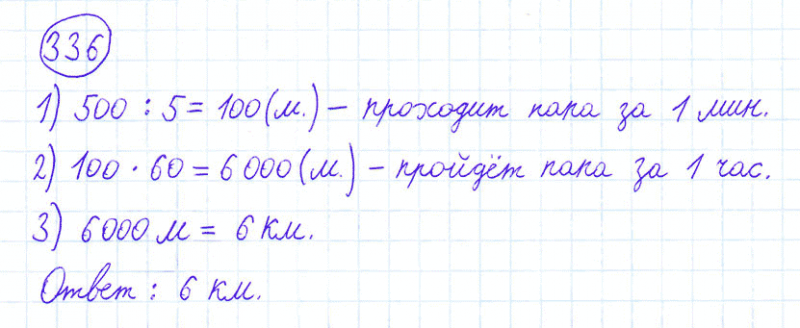 336
1) 500 : 5 = 100 (м.) – проходит папа за 1 мин.
2) 100 · 60 = 6 000 (м.) – пройдёт папа за 1 час.
3) 6000 м = 6 км.
Ответ : 6 км.